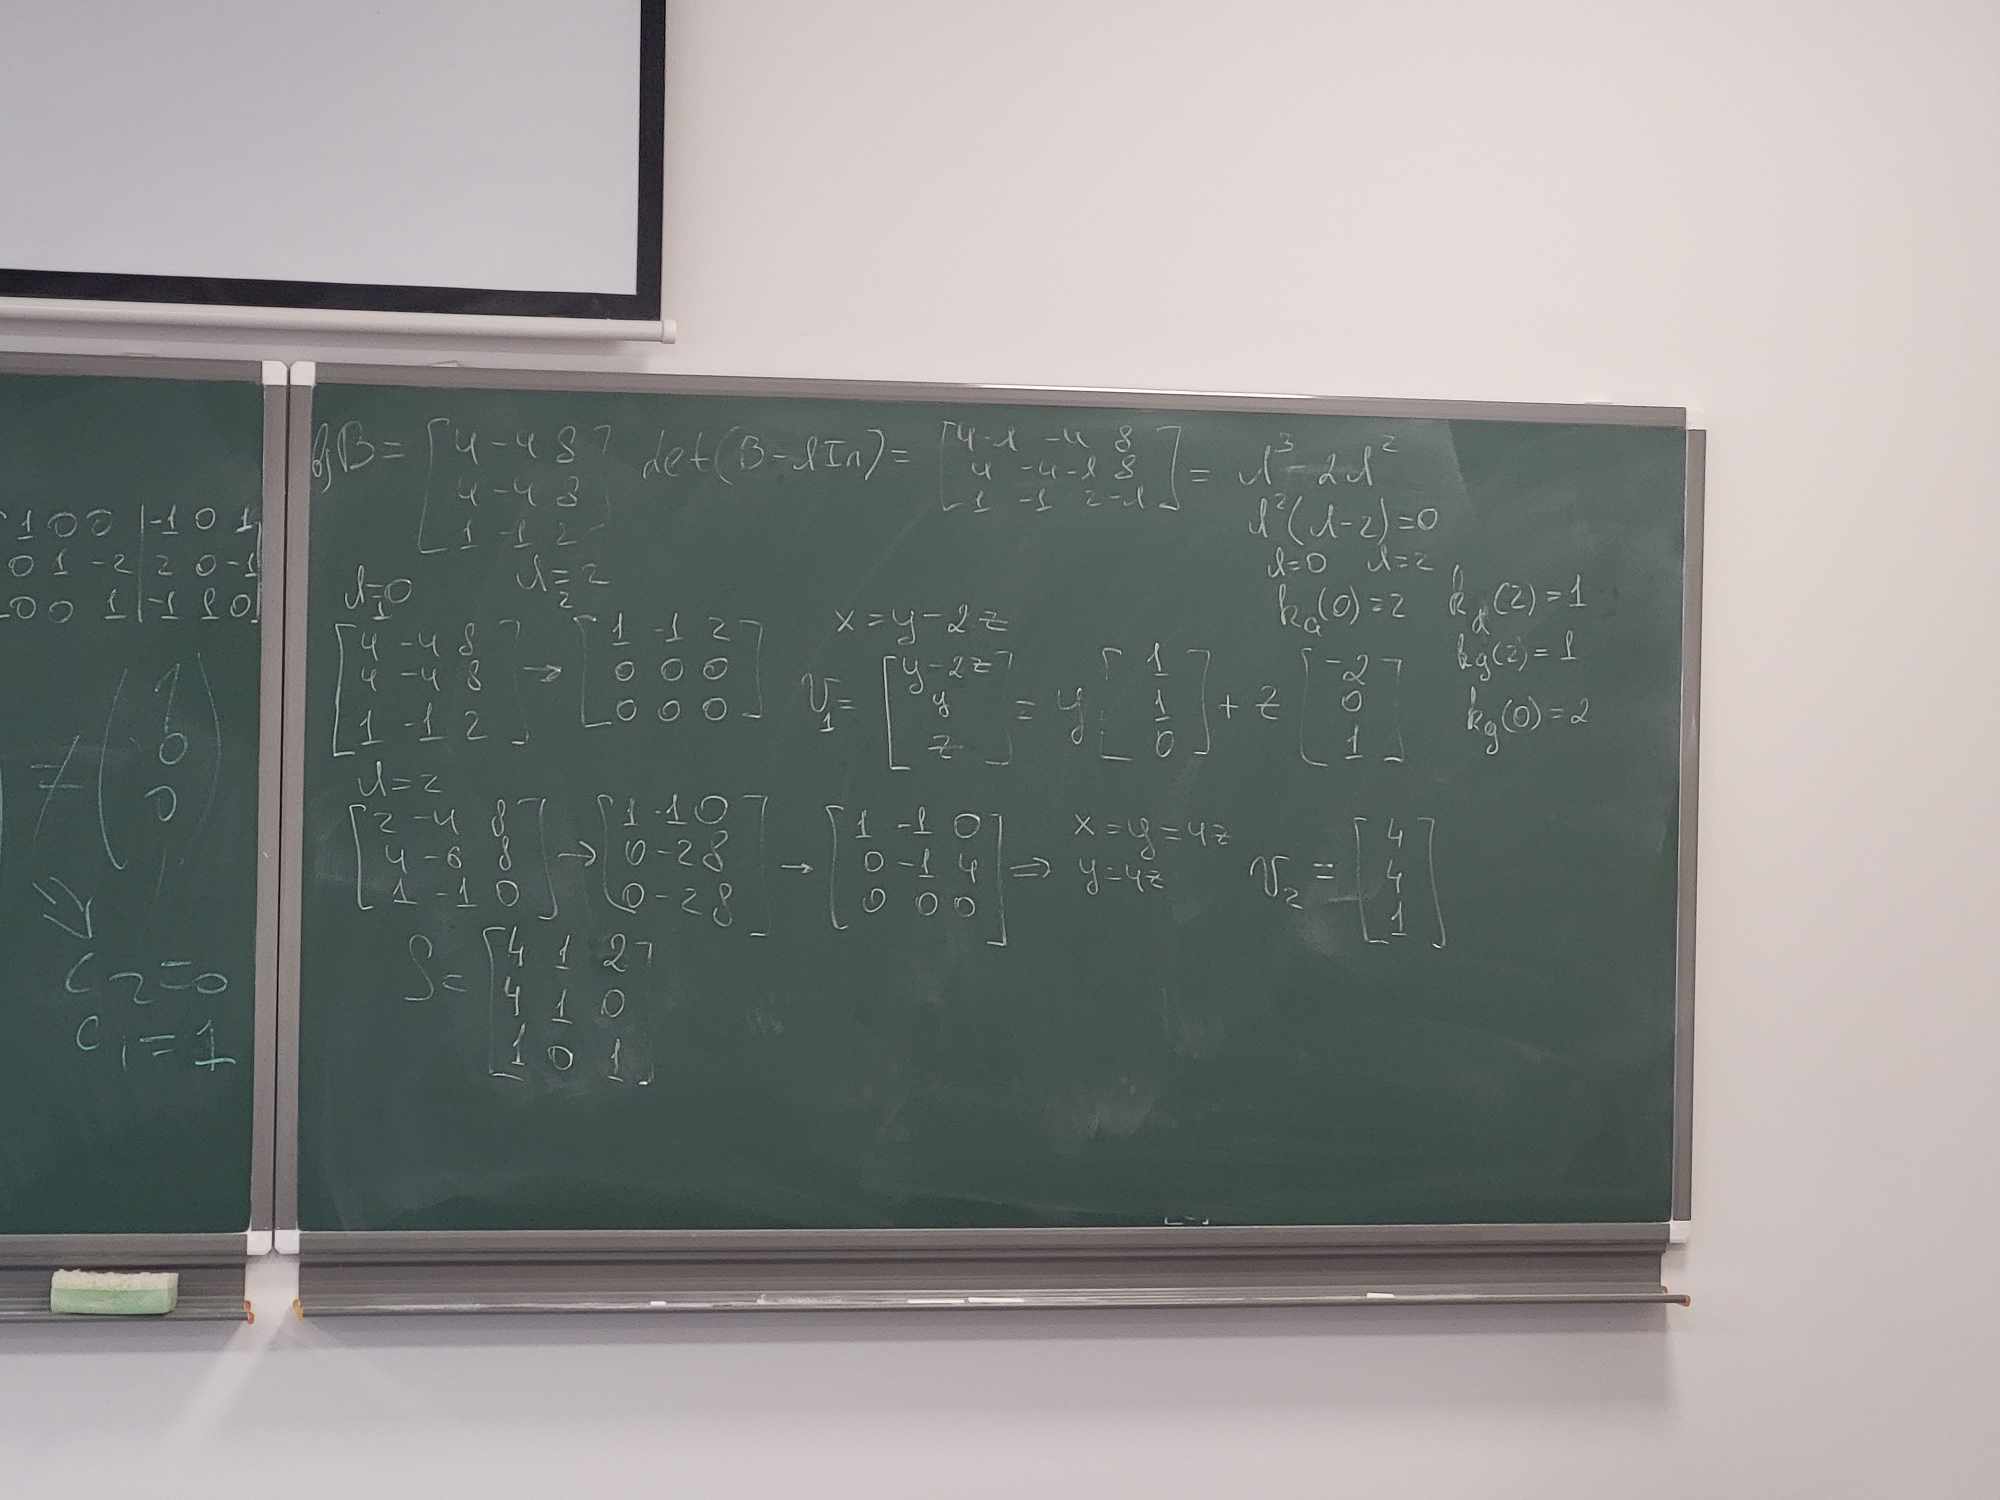 1 0 0 | -1 0 1
0 1 -2 | 2 0 -1
0 0 1 | -1 1 0
≠ (1 0 0)
⇒
c₂ = 0
c₁ = 1
b) B = [4 -4 8; 4 -4 8; 1 -1 2] det(B - λIn) = [4-λ -4 8; 4 -4-λ 8; 1 -1 2-λ] = λ³ - 2λ²
λ²(λ-2) = 0
λ=0 λ=2
ka(0) = 2 ka(2) = 1
kg(2) = 1
kg(0) = 2
λ₁=0 λ₂=2
[4 -4 8; 4 -4 8; 1 -1 2] → [1 -1 2; 0 0 0; 0 0 0] x = y - 2z
V₁ = [y-2z; y; z] = y [1; 1; 0] + z [-2; 0; 1]
λ=2
[2 -4 8; 4 -6 8; 1 -1 0] → [1 -1 0; 0 -2 8; 0 -2 8] → [1 -1 0; 0 -1 4; 0 0 0] ⇒ x = y = 4z
y = 4z
V₂ = [4; 4; 1]
S = [4 1 2; 4 1 0; 1 0 1]